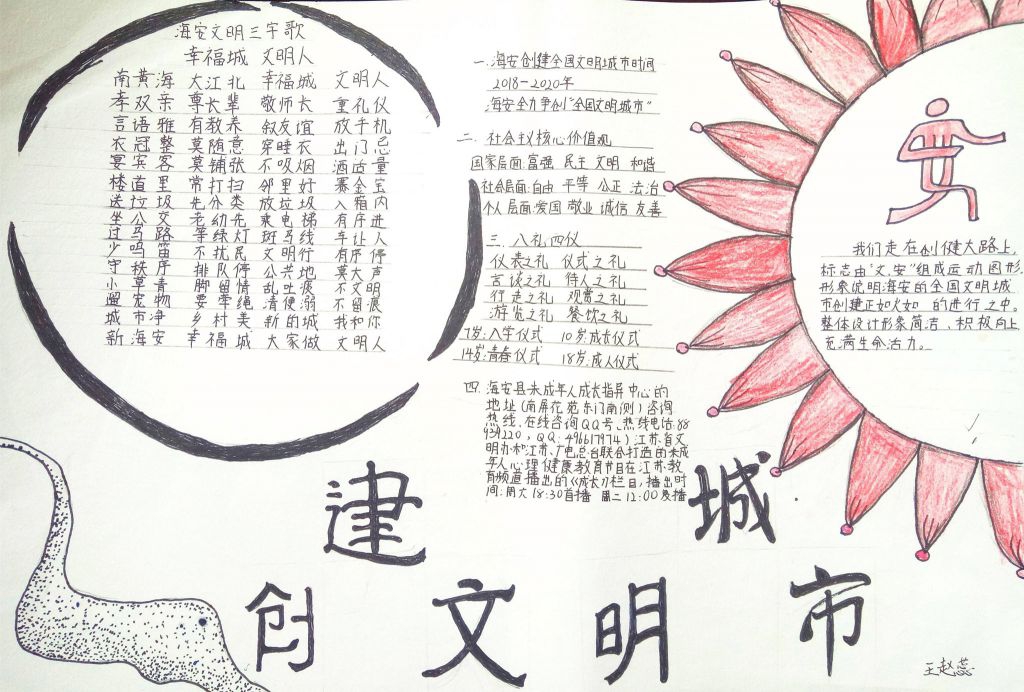 海安文明三字歌
幸福城 文明人
南黄海 大江北 幸福城 文明人
孝双亲 尊长辈 敬师长 重礼仪
言语雅 有教养 叙友谊 放手机
衣冠整 莫随意 穿睡衣 出门忌
宴宾客 莫铺张 不吸烟 酒适量
楼道里 常打扫 邻里好 赛金宝
送垃圾 先分类 放垃圾 入箱内
坐公交 老幼先 乘电梯 有序进
过马路 等绿灯 斑马线 车让人
少鸣笛 不扰民 文明行 有序停
守秩序 排队停 公共地 莫大声
小草青 脚留情 乱吐痰 不文明
遛宠物 要牵绳 清便溺 不留痕
城市净 乡村美 新的城 我和你
新海安 幸福城 大家做 文明人
一.海安创健全国文明城市时间
2018-2020年
海安全力争创"全国文明城市"
二.社会主义核心价值观
国家层面:富强 民主 文明 和谐
社会层面:自由 平等 公正 法治
个人层面:爱国 敬业 诚信 友善
三.八礼四仪
仪表之礼 仪式之礼
言谈之礼 待人之礼
行走之礼 观赏之礼
游览之礼 餐饮之礼
7岁:入学仪式 10岁:成长仪式
14岁:青春仪式 18岁:成人仪式
四.海安县未成年人成长指导中心的
地址(南屏花苑东门南侧)咨询
热线、在线咨询QQ号、热线电话:88
939220,QQ:496617974)江苏省文
明办和江苏广电总台联合打造的未成
年人心理健康教育节目在江苏教
育频道播出的《成长》栏目,播出时
间:周六18:30首播 周二12:00复播
我们走在创健大路上,
标志由"文、安"组成运动图形,
形象说明海安的全国文明城
市创建正如火如 的进行之中。
整体设计形象简洁、积极向上
充满生命活力。
创建文明城市
王赵蕊